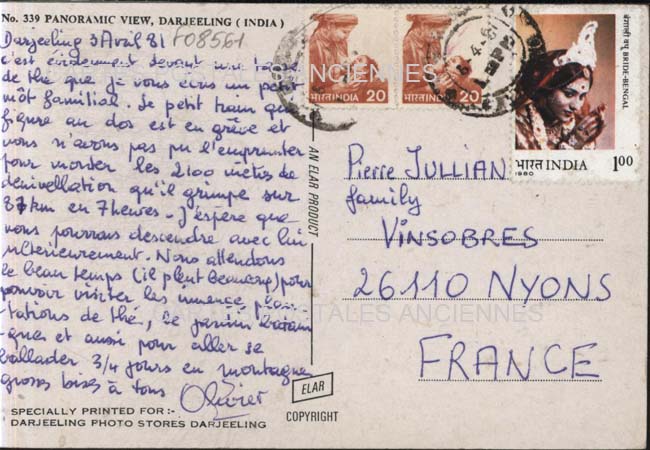 No. 339 PANORAMIC VIEW, DARJEELING ( INDIA )
Darjeeling 3 Avril 81
F08561
c'est évidemment devant une tasse
de thé que je vous écris un petit
môt familial. Le petit train qui
figure au dos est en grève et
nous n'avons pas pu l'emprunter
pour monter les 2100 mètres de
dénivellation qu'il grimpe sur
87km en 7 heures - J'espère que
nous pourrons descendre avec lui
ultérieurement. Nous attendons
le beau temps (il pleut beaucoup) pour
pouvoir visiter les plan
-tations de thé, le jardin botani
-ques et aussi pour aller se
ballader 3/4 jours en montagnes
grosses bises à tous Olivier
SPECIALLY PRINTED FOR :-
DARJEELING PHOTO STORES DARJEELING
AN ELAR PRODUCT
ELAR
COPYRIGHT
भारत INDIA 20
भारत INDIA 20
बंगाली वधू BRIDE-BENGAL
भारत INDIA 1.00
1980
Pierre JULLIAN
family
VINSOBRES
26110 NYONS
FRANCE
CARTES POSTALES ANCIENNES